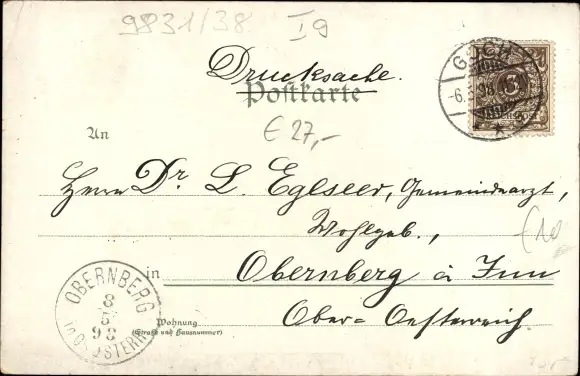 9831/38 I9
Drucksache.
Postkarte
€ 27,-
An
Herrn Dr. L. Eglseer, Gemeindearzt,
Wohlgeb.,
€10
in Obernberg a Inn
Ober=Oesterreich.
Wohnung
(Straße und Hausnummer)
GOCH
-6.5.98
3
OBERNBERG
8
5
98